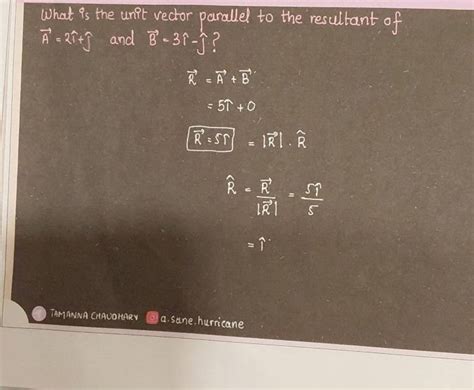 What is the unit vector parallel to the resultant of
A⃗ = 2î+ĵ and B⃗ = 3î-ĵ ?
R⃗ = A⃗ + B⃗
= 5î + 0
R⃗ = 5î = |R⃗| . R̂
R̂ = R⃗/|R⃗| = 5î/5
= î
TAMANNA CHAUDHARY a.sane.hurricane